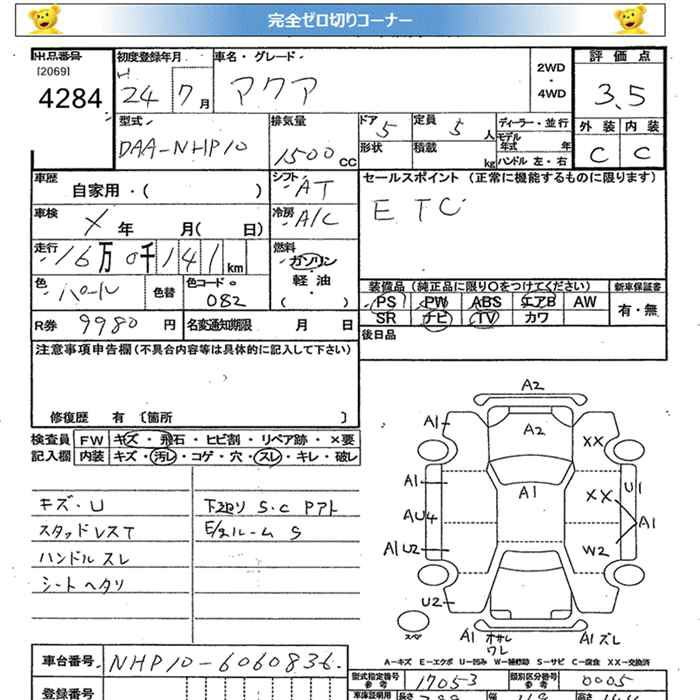 完全ゼロ切りコーナー
出品番号 初度登録年月 車名・グレード 評価点
[2069] 4284
24 7月 アクア 2WD・4WD 3.5
型式 排気量 ドア 5 定員 5人 ディーラー・並行 外装 内装
DAA-NHP10 1500CC 形状 積載 kg モデル年式 年 C C
ハンドル 左・右
車歴 シフト AT セールスポイント (正常に機能するものに限ります)
自家用・( ) ETC
車検 X年 月( 日) 冷房 A/C
走行 16万0千141km 燃料 ガソリン・軽油・( )
色 パール 色替 色コードNo 082 装備品 (純正品に限り〇をつけてください) 新車保証書
PS PW ABS エアB AW 有・無
SR ナビ TV カワ
R券 9980円 名変通知期限 月 日 後日品
注意事項申告欄 (不具合内容等は具体的に記入して下さい)
修復歴 有 〔箇所 〕
検査員 FW キズ・飛石・ヒビ割・リペア跡・×要
記入欄 内装 キズ・汚レ・コゲ・穴・スレ・キレ・破レ
キズ・U 下廻り S.C Pアト
スタッドレスT E/gルーム S
ハンドル スレ
シート ヘタリ
A2
A1 A2 XX
A1 A1 XX U1
AU4 A1
A1 U2 W2
U2
スペア A1 オサレ ワレ A1 ズレ
A-キズ E-エクボ U-凹み W-補修跡 S-サビ C-腐食 XX-交換済
車台番号 NHP10-6060836
型式指定番号 参考 17053 類別区分番号 参考 0005
登録番号 車庫証明用 長さ